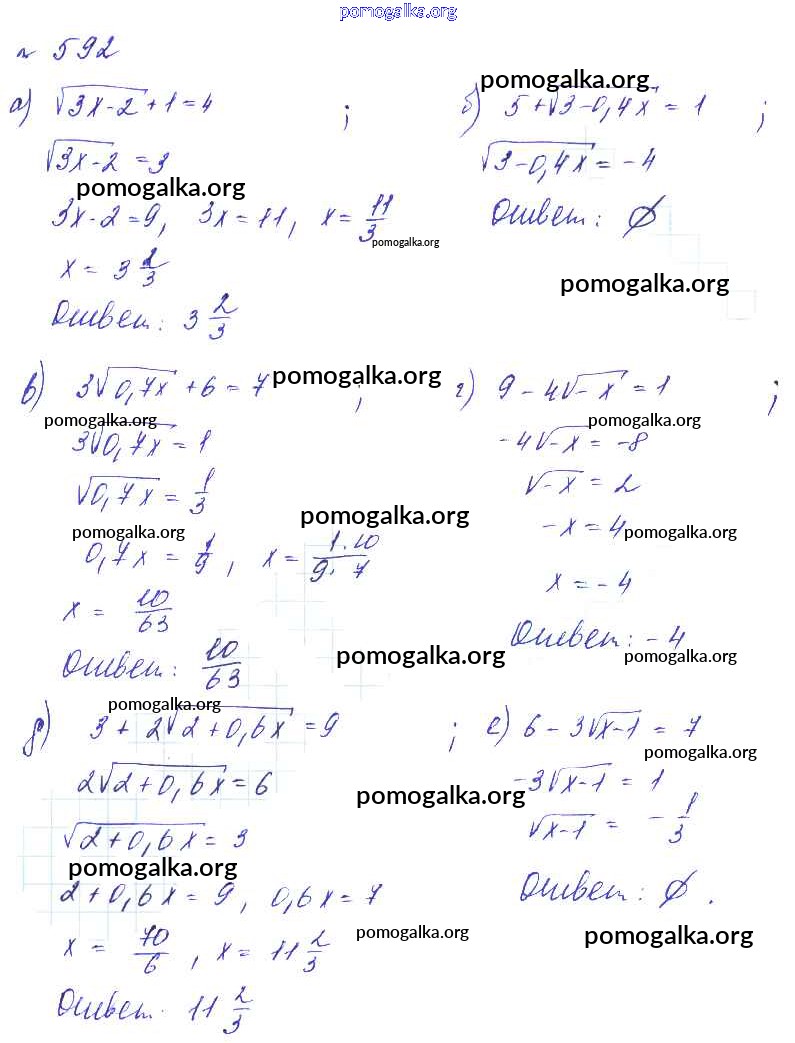 pomogalka.org
№ 592
а) √3x-2 + 1 = 4 ;
√3x-2 = 3
pomogalka.org
3x-2=9, 3x=11, x= 11/3
pomogalka.org
x = 3 2/3
Ответ: 3 2/3
pomogalka.org
б) 5+√3-0,4x = 1 ;
√3-0,4x = -4
Ответ: ∅
pomogalka.org
в) 3√0,7x + 6 = 7 ;
pomogalka.org
pomogalka.org
3√0,7x = 1
√0,7x = 1/3
pomogalka.org
pomogalka.org
0,7x = 1/9, x= 1·10/9·7
x = 10/63
Ответ: 10/63
pomogalka.org
г) 9 - 4√-x = 1 ;
pomogalka.org
-4√-x = -8
√-x = 2
-x = 4
pomogalka.org
x = -4
Ответ: -4
pomogalka.org
pomogalka.org
д) 3 + 2√2+0,6x = 9 ;
2√2+0,6x = 6
pomogalka.org
√2+0,6x = 3
pomogalka.org
2+0,6x = 9, 0,6x = 7
x = 70/6, x = 11 2/3
pomogalka.org
Ответ. 11 2/3
е) 6 - 3√x-1 = 7
pomogalka.org
-3√x-1 = 1
√x-1 = -1/3
Ответ: ∅.
pomogalka.org